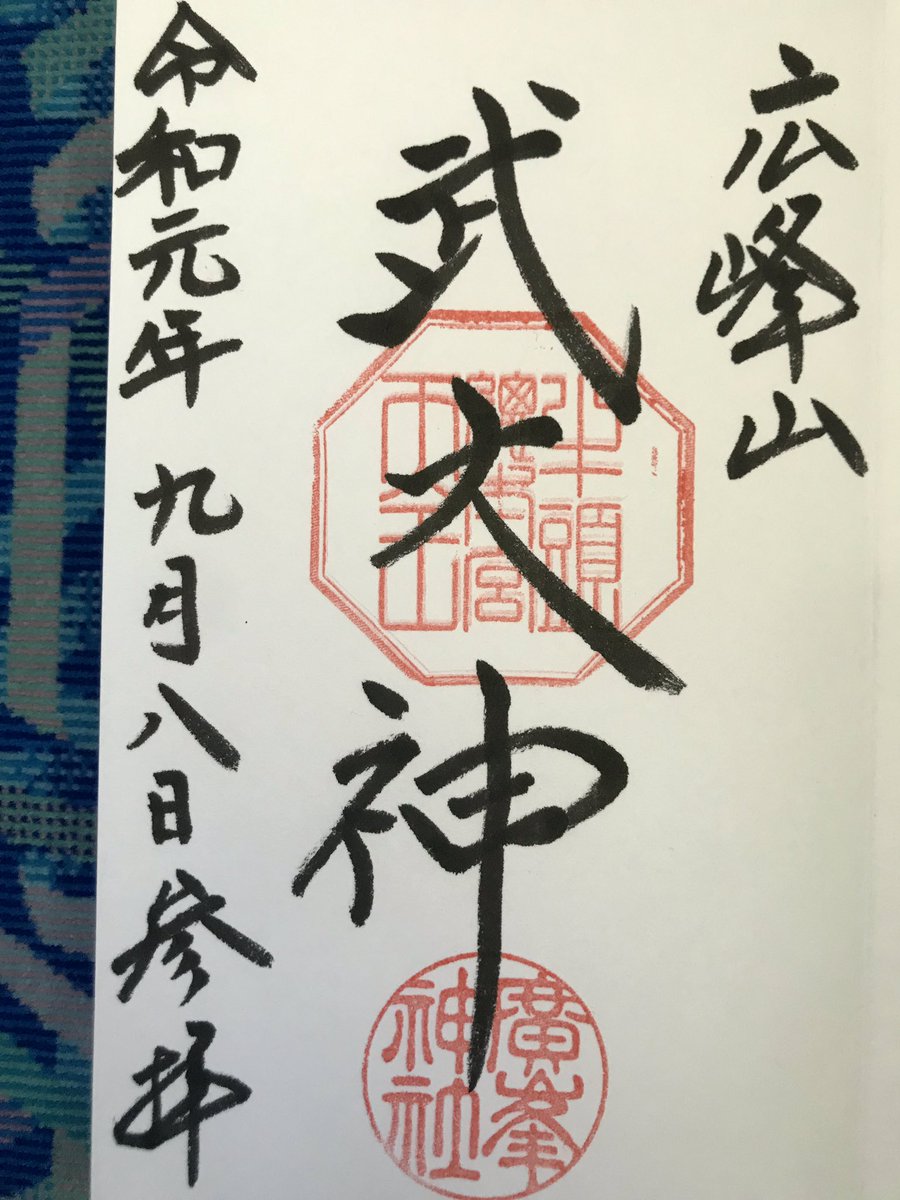 広峰山
武大神
牛頭
總本宮
天王
廣峯
神社
令和元年 九月八日 参拝